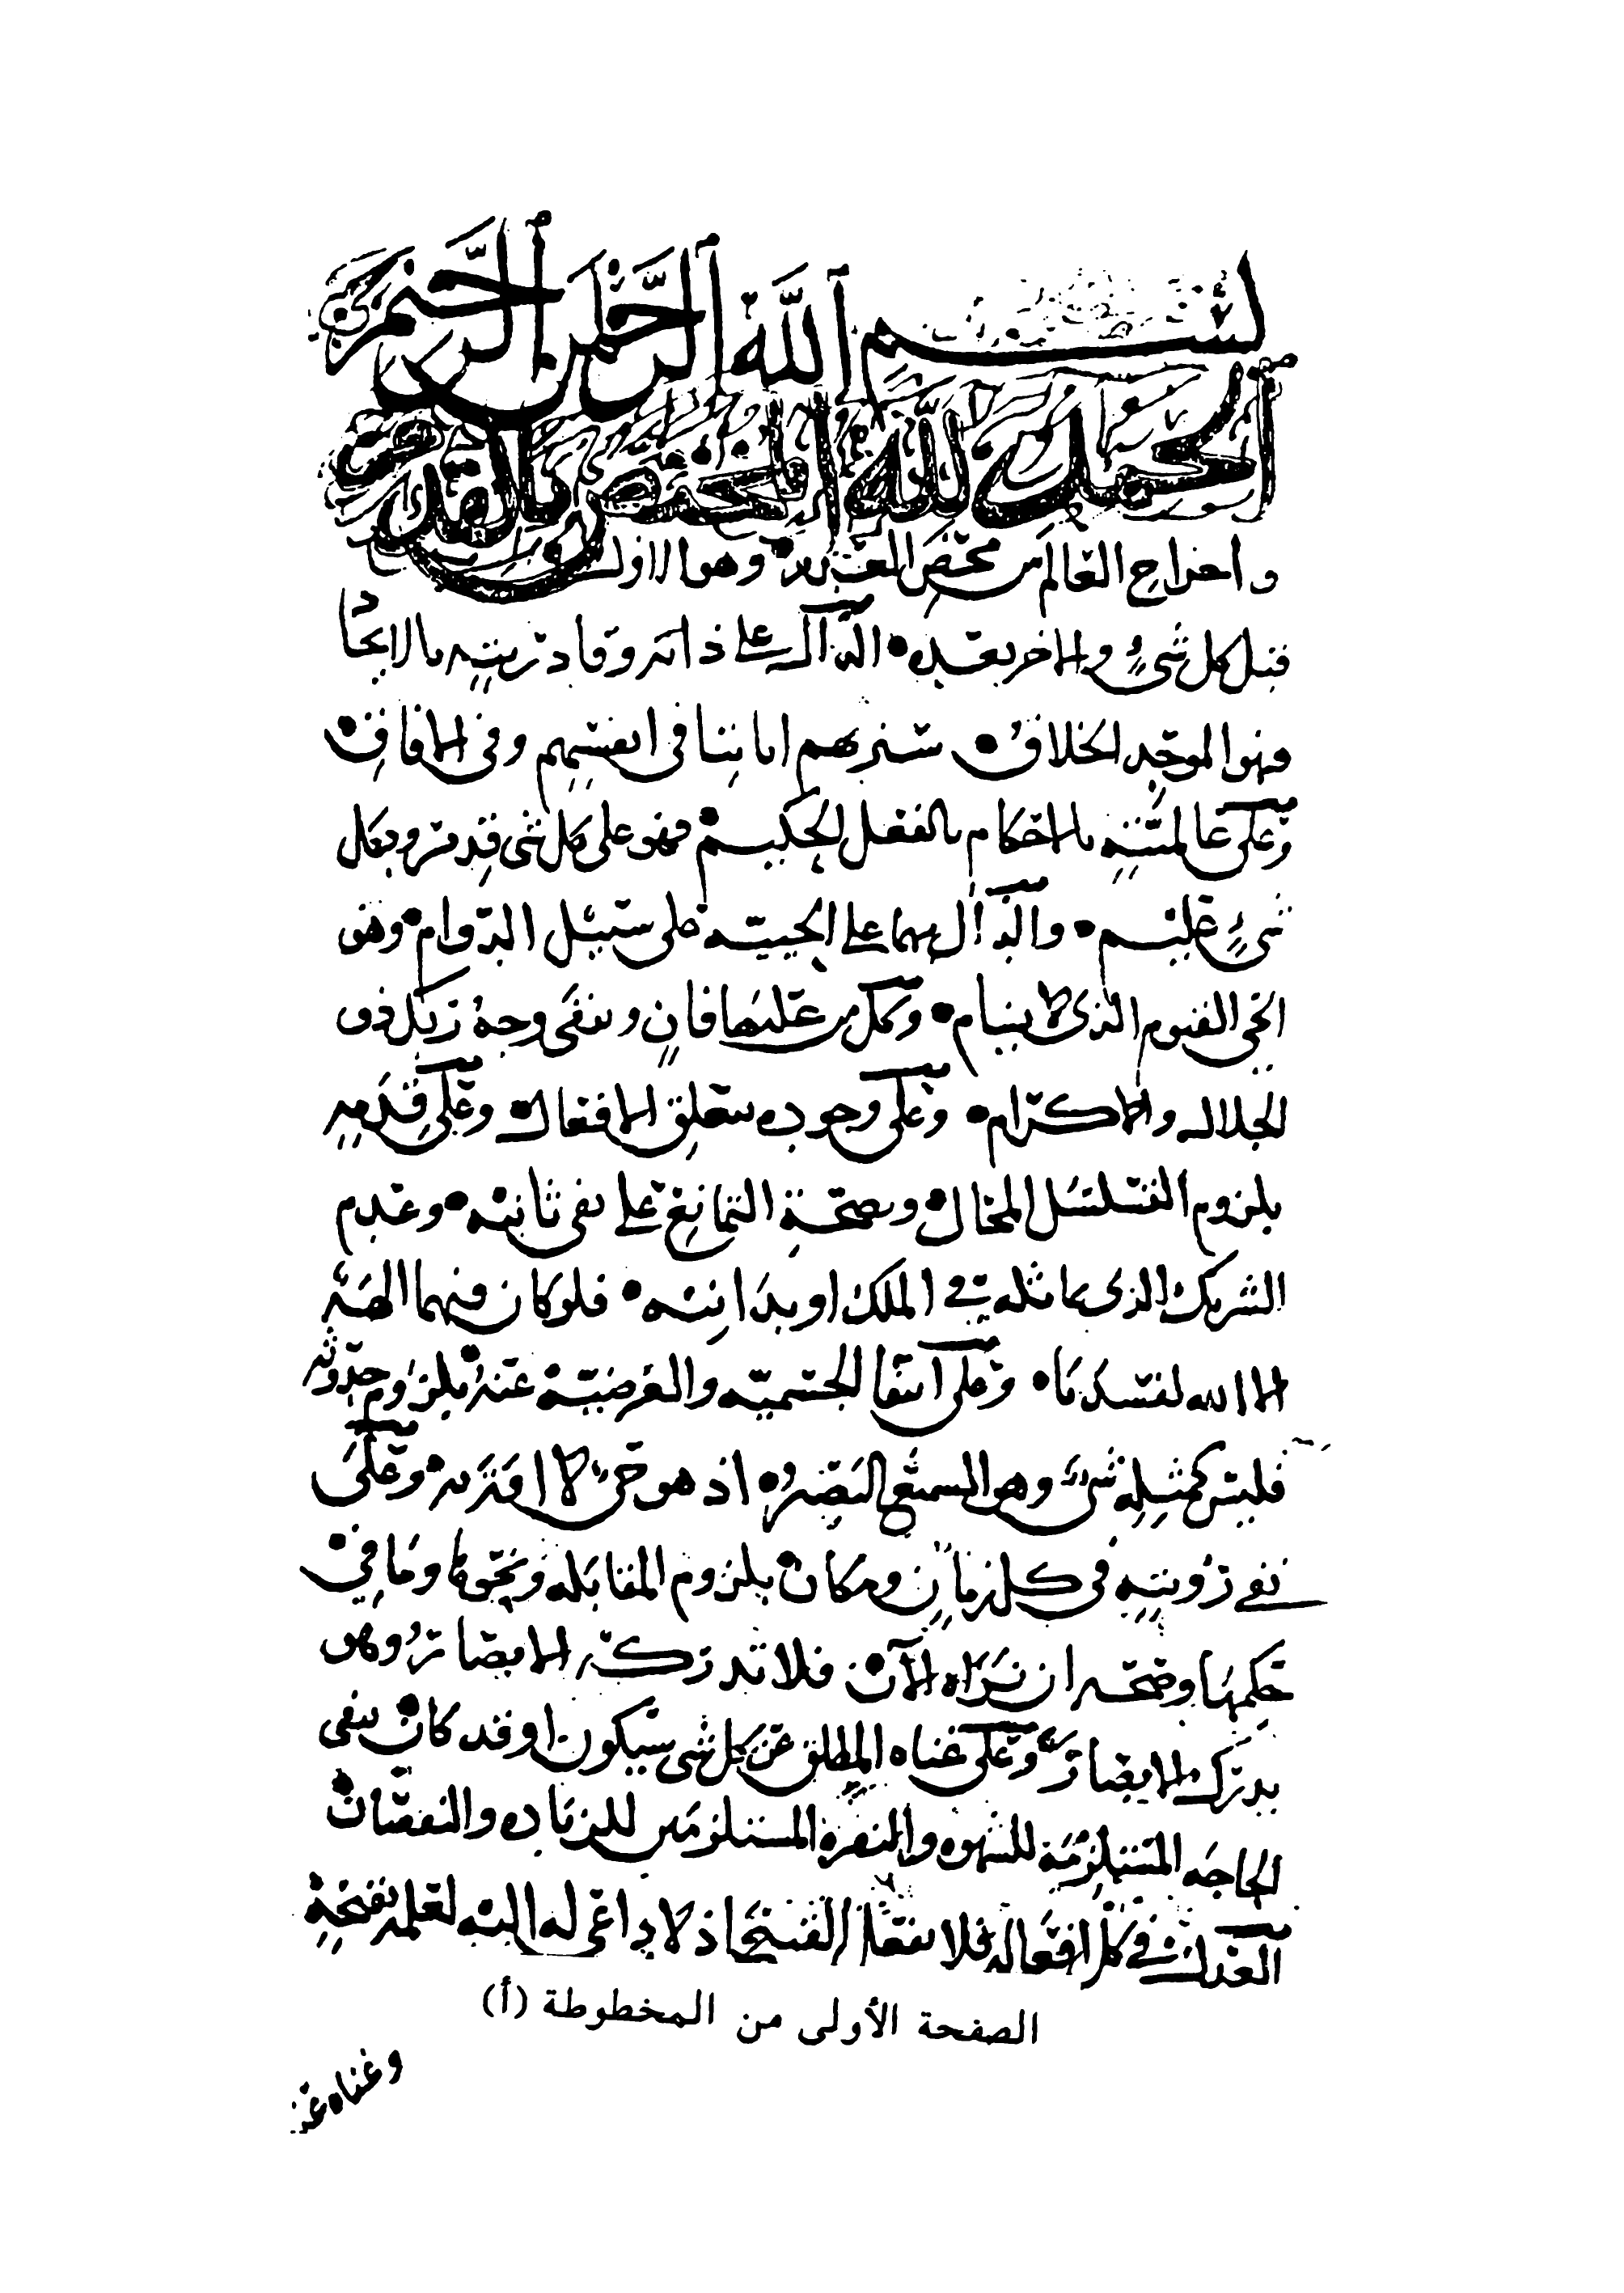 بسم الله الرحمن الرحيم
الحمد لله المختص بالقدم
واخراج العالم من محض العدم وهو الاول
قبل كل شيء والاخر بعده الدال على ذاته وقادريته بالايجاد
فهو الموجد الخلاق سنريهم اياتنا في انفسهم وفي الافاق
وعلى عالميته بالاحكام بالفعل الحكيم فهو على كل شي قدير وبكل
شيء عليم والدال بهما على الحيية على سبيل الدوام وهو
الحي القيوم الذي لا ينام وكل من عليها فان ويبقى وجه ربك ذو
الجلال والاكرام وعلى وجوده بتعلق الافعال وعلى قدمه
بلزوم التسلسل المحال وبصحة التمانع على نفي ثانيه وعدم
الشريك الذي يماثله في الملك او يدانيه فلو كان فيهما الهة
الا الله لفسدتا وعلى انتفا الجسمية والعرضية عنه بلزوم حدوثه
فليس كمثله شيء وهو السميع البصير اذ هو حي لا افة به وعلى
نفي رؤيته في كل زمان ومكان بلزوم المقابلة ونحوها وما في
حكمها وصحة ان نراه الآن فلا تدركه الابصار وهو
يدرك الابصار وعلى غناه المطلق عن كل شي سيكون او قد كان بنفي
الحاجة المستلزمة للشهوة والنفرة المستلزمين للزيادة والنقصان
العدل في كل افعاله فلا يفعل القبيح اذ لا داعي له اليه لعلمه بقبحه
الصفحة الأولى من المخطوطة (أ)
وغناه عن